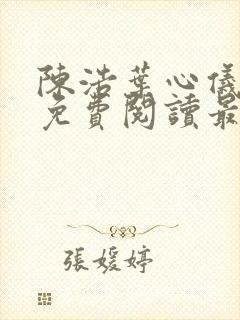 陳浩葉心儀
免費閱讀最
張媛婷